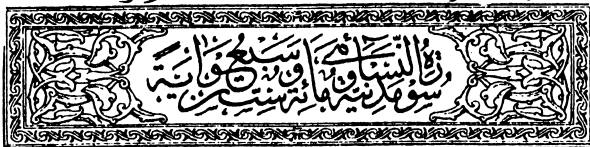 سورة النساء مدنية وهي مائة وست وسبعون اية